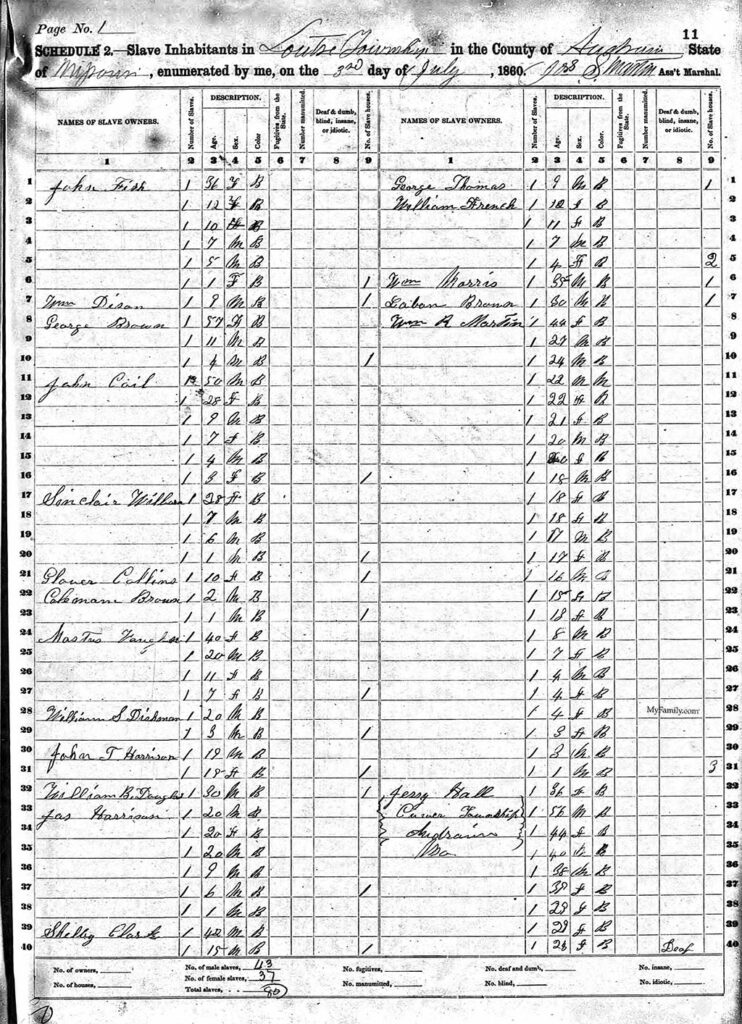 Page No. 1
11
SCHEDULE 2.—Slave Inhabitants in Loutre Township in the County of Audrain State
of Missouri, enumerated by me, on the 3rd day of July, 1860. Jos S. Martin Ass't Marshal.
NAMES OF SLAVE OWNERS. Number of Slaves. DESCRIPTION. Age. Sex. Color. Fugitives from the State. Number manumitted. Deaf & dumb, blind, insane, or idiotic. No. of Slave houses. NAMES OF SLAVE OWNERS. Number of Slaves. DESCRIPTION. Age. Sex. Color. Fugitives from the State. Number manumitted. Deaf & dumb, blind, insane, or idiotic. No. of Slave houses.
1 2 3 4 5 6 7 8 9 1 2 3 4 5 6 7 8 9
1 John Fisk 1 36 F B George Thomas 1 9 M B 1 1
2 1 12 F B William French 1 12 f B 2
3 1 10 B 1 11 f B 3
4 1 7 M B 1 7 M B 4
5 1 5 M B 1 4 F B 2 5
6 1 1 F B 1 Wm Morris 1 35 M B 1 6
7 Wm Dison 1 9 M B 1 Laban Brown 1 30 M B 1 7
8 George Brown 1 57 f B Wm R Martin 1 44 f B 8
9 1 11 M B 1 27 M B 9
10 1 4 M B 1 1 24 M B 10
11 John Coil 50 M B 1 22 M M 11
12 1 28 f B 1 22 f B 12
13 1 9 M B 1 21 f B 13
14 1 7 f B 1 20 M B 14
15 1 4 M B 1 f B 15
16 1 3 F B 1 1 18 M B 16
17 Sinclair 1 28 f B 1 18 f B 17
18 1 7 M B 1 18 f B 18
19 1 6 M B 1 17 M B 19
20 1 1 M B 1 1 17 f B 20
21 Glover Collins 1 10 f B 1 1 16 M B 21
22 Coleman Brown 1 2 M B 1 15 f B 22
23 1 1 M B 1 1 f B 23
24 1 40 f B 1 8 M B 24
25 1 20 M B 1 7 f B 25
26 1 11 f B 1 4 M B 26
27 1 7 f B 1 1 4 f B 27
28 William S 1 20 M B 1 4 f B MyFamily.com 28
29 1 3 M B 1 1 3 f B 29
30 John T Harrison 1 19 M B 1 3 M B 30
31 1 f B 1 1 1 M B 3 31
32 William B. Dougl 1 30 M B 1 Jerry Hall 1 36 f B 32
33 Jas Harrison 1 20 M B Township 1 56 M B 33
34 1 20 f B Audrain 1 44 f B 34
35 1 20 M B Mo 1 40 f B 35
36 1 9 M B 1 38 M B 36
37 1 6 M B 1 1 f B 37
38 1 1 M B 1 29 f B 38
39 Shelby Clark 1 42 M B 1 29 f B 39
40 1 15 M B 1 1 f B Deaf 40
No. of owners, No. of male slaves, 43 No. fugitives, No. deaf and dumb, No. insane,
No. of houses, No. of female slaves, 37 No. manumitted, No. blind, No. idiotic,
Total slaves, 80